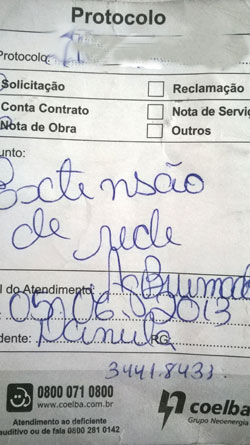 Protocolo
Protocolo:
Solicitação
Reclamação
Conta Contrato
Nota de Serviç
Nota de Obra
Outros
unto:
Extensão
de rede
l do Atendimento:
05.06.2013
dente:
RG
3441.8431
0800 071 0800
www.coelba.com.br
coelba
Grupo Neoenergia
Atendimento ao deficiente
auditivo ou de fala 0800 281 0142